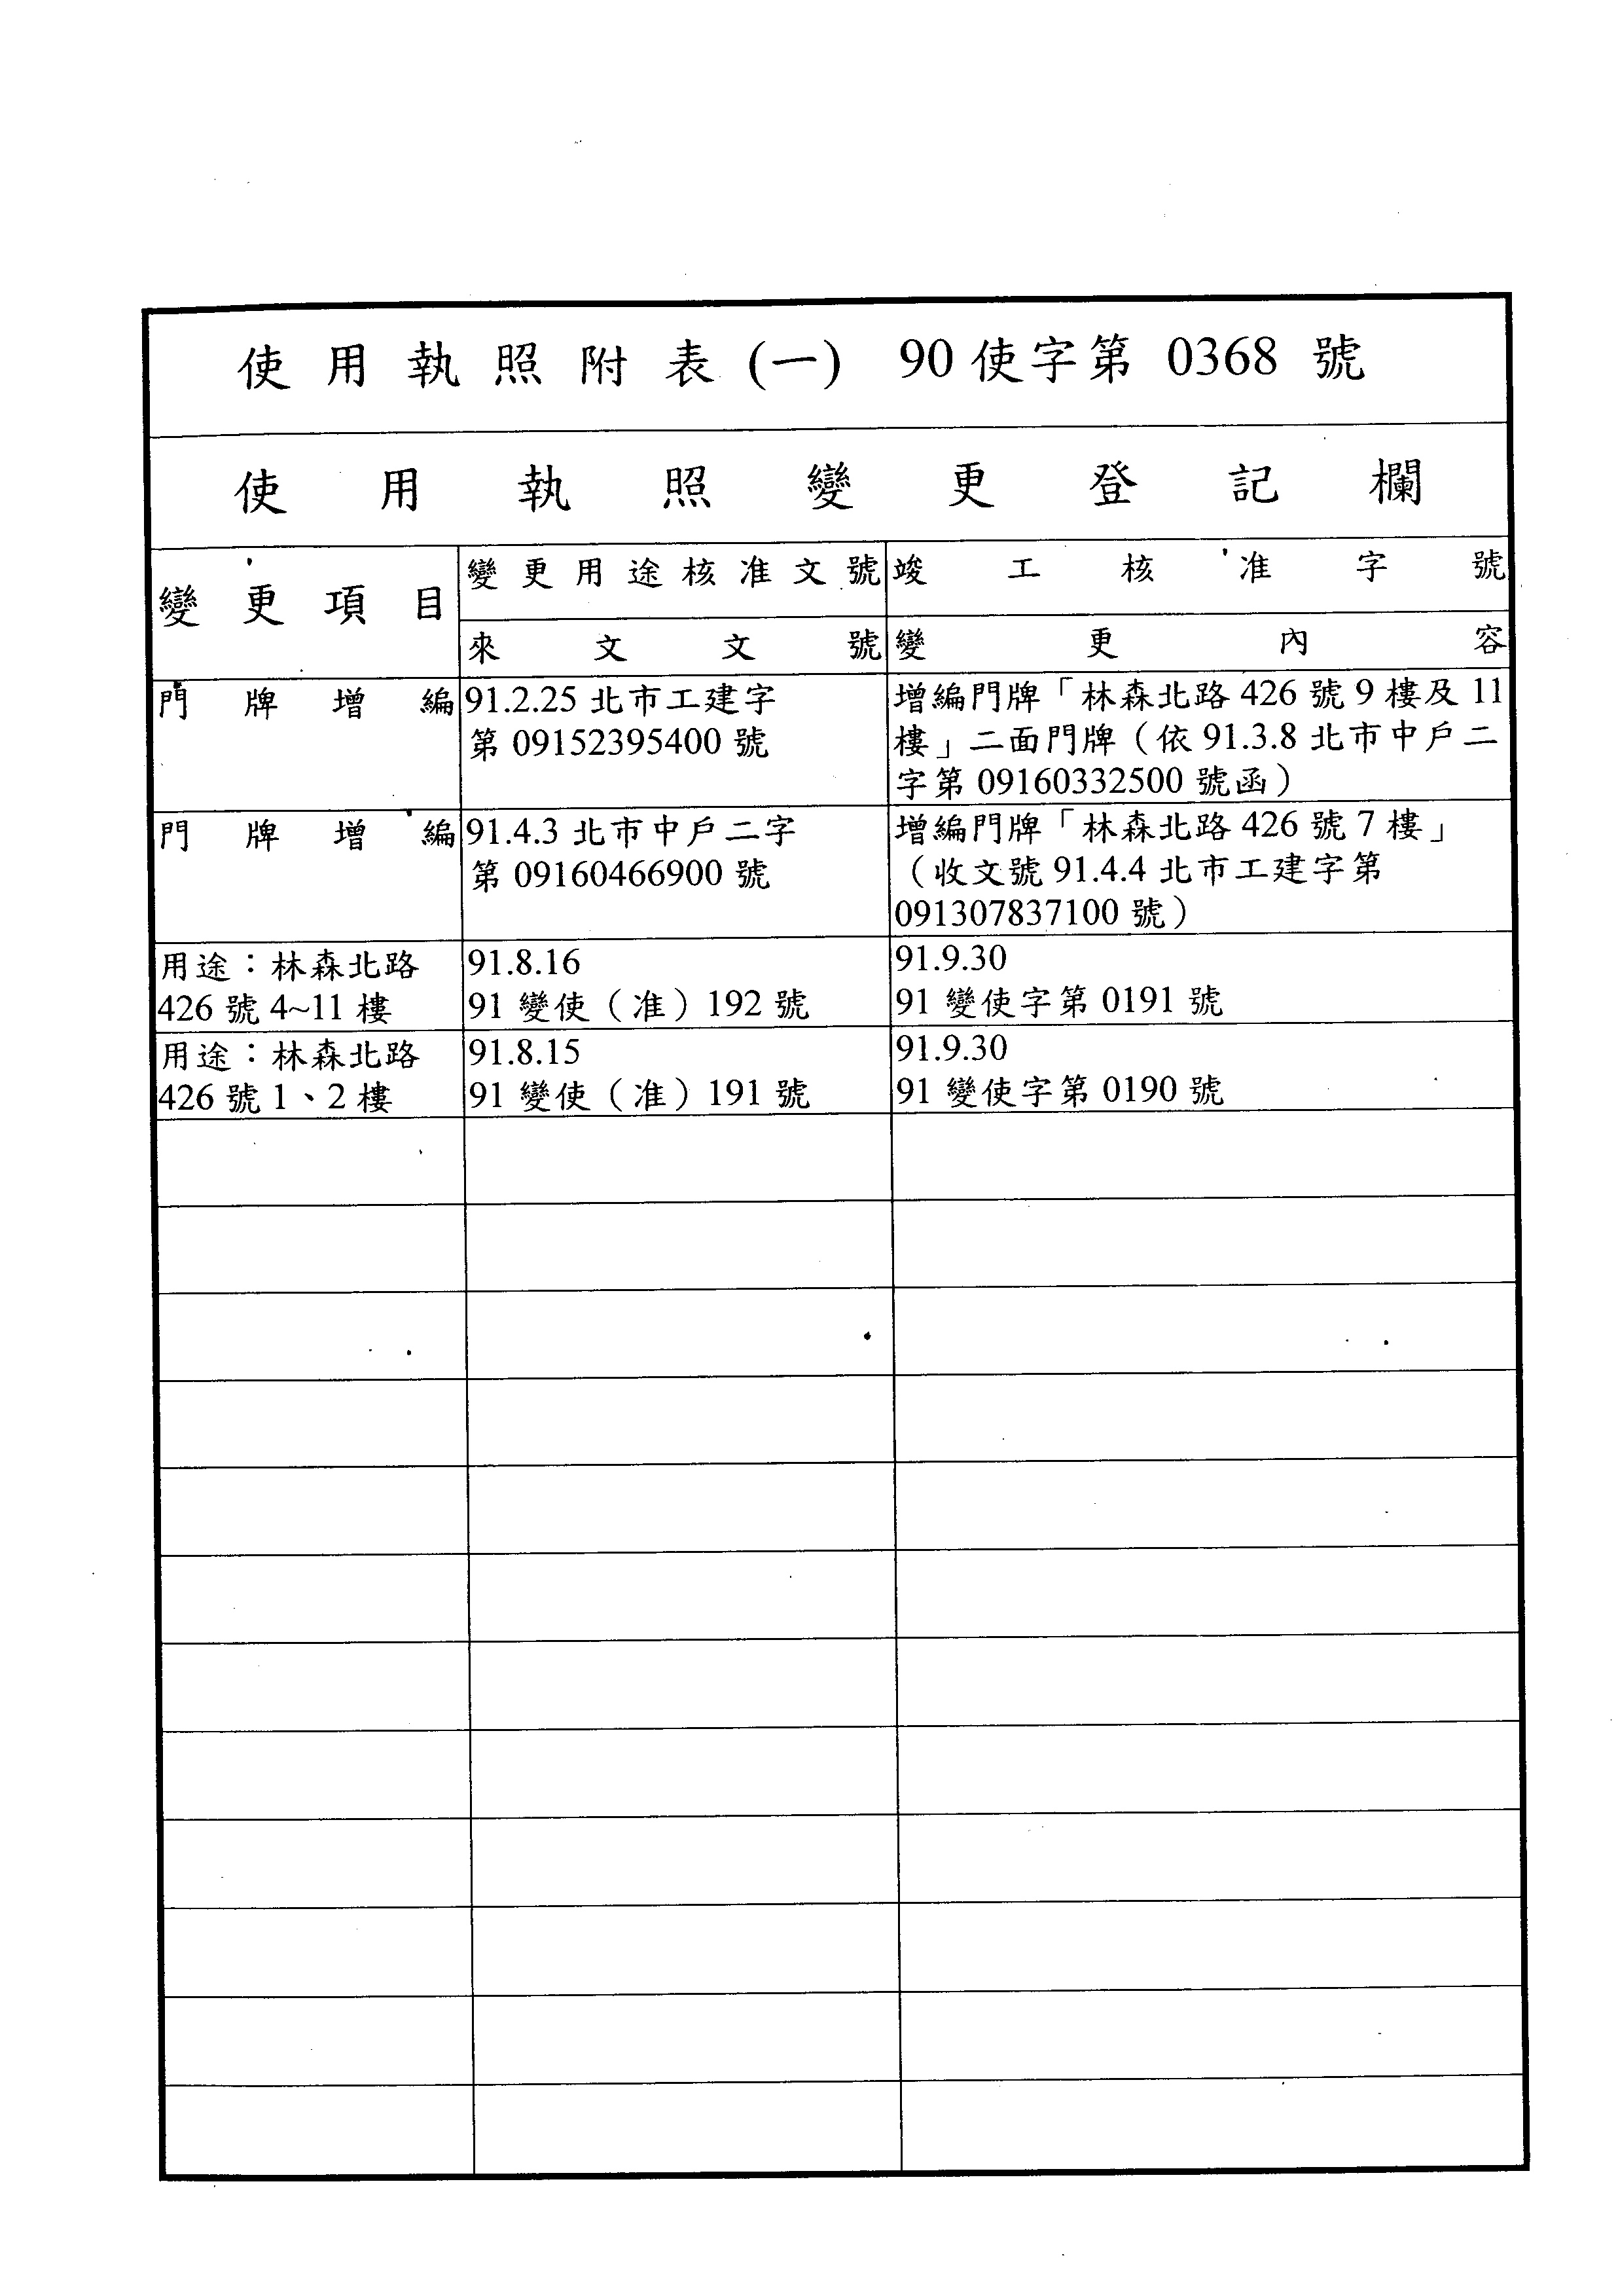 使用執照附表(一) 90使字第 0368 號
使用執照變更登記欄
變更項目
變更用途核准文號
竣工核准字號
來文文號
變更內容
門牌增編
91.2.25 北市工建字
第 09152395400 號
增編門牌「林森北路 426 號 9 樓及 11
樓」二面門牌（依 91.3.8 北市中戶二
字第 09160332500 號函）
門牌增編
91.4.3 北市中戶二字
第 09160466900 號
增編門牌「林森北路 426 號 7 樓」
（收文號 91.4.4 北市工建字第
091307837100 號）
用途：林森北路
426 號 4~11 樓
91.8.16
91 變使（准）192 號
91.9.30
91 變使字第 0191 號
用途：林森北路
426 號 1、2 樓
91.8.15
91 變使（准）191 號
91.9.30
91 變使字第 0190 號